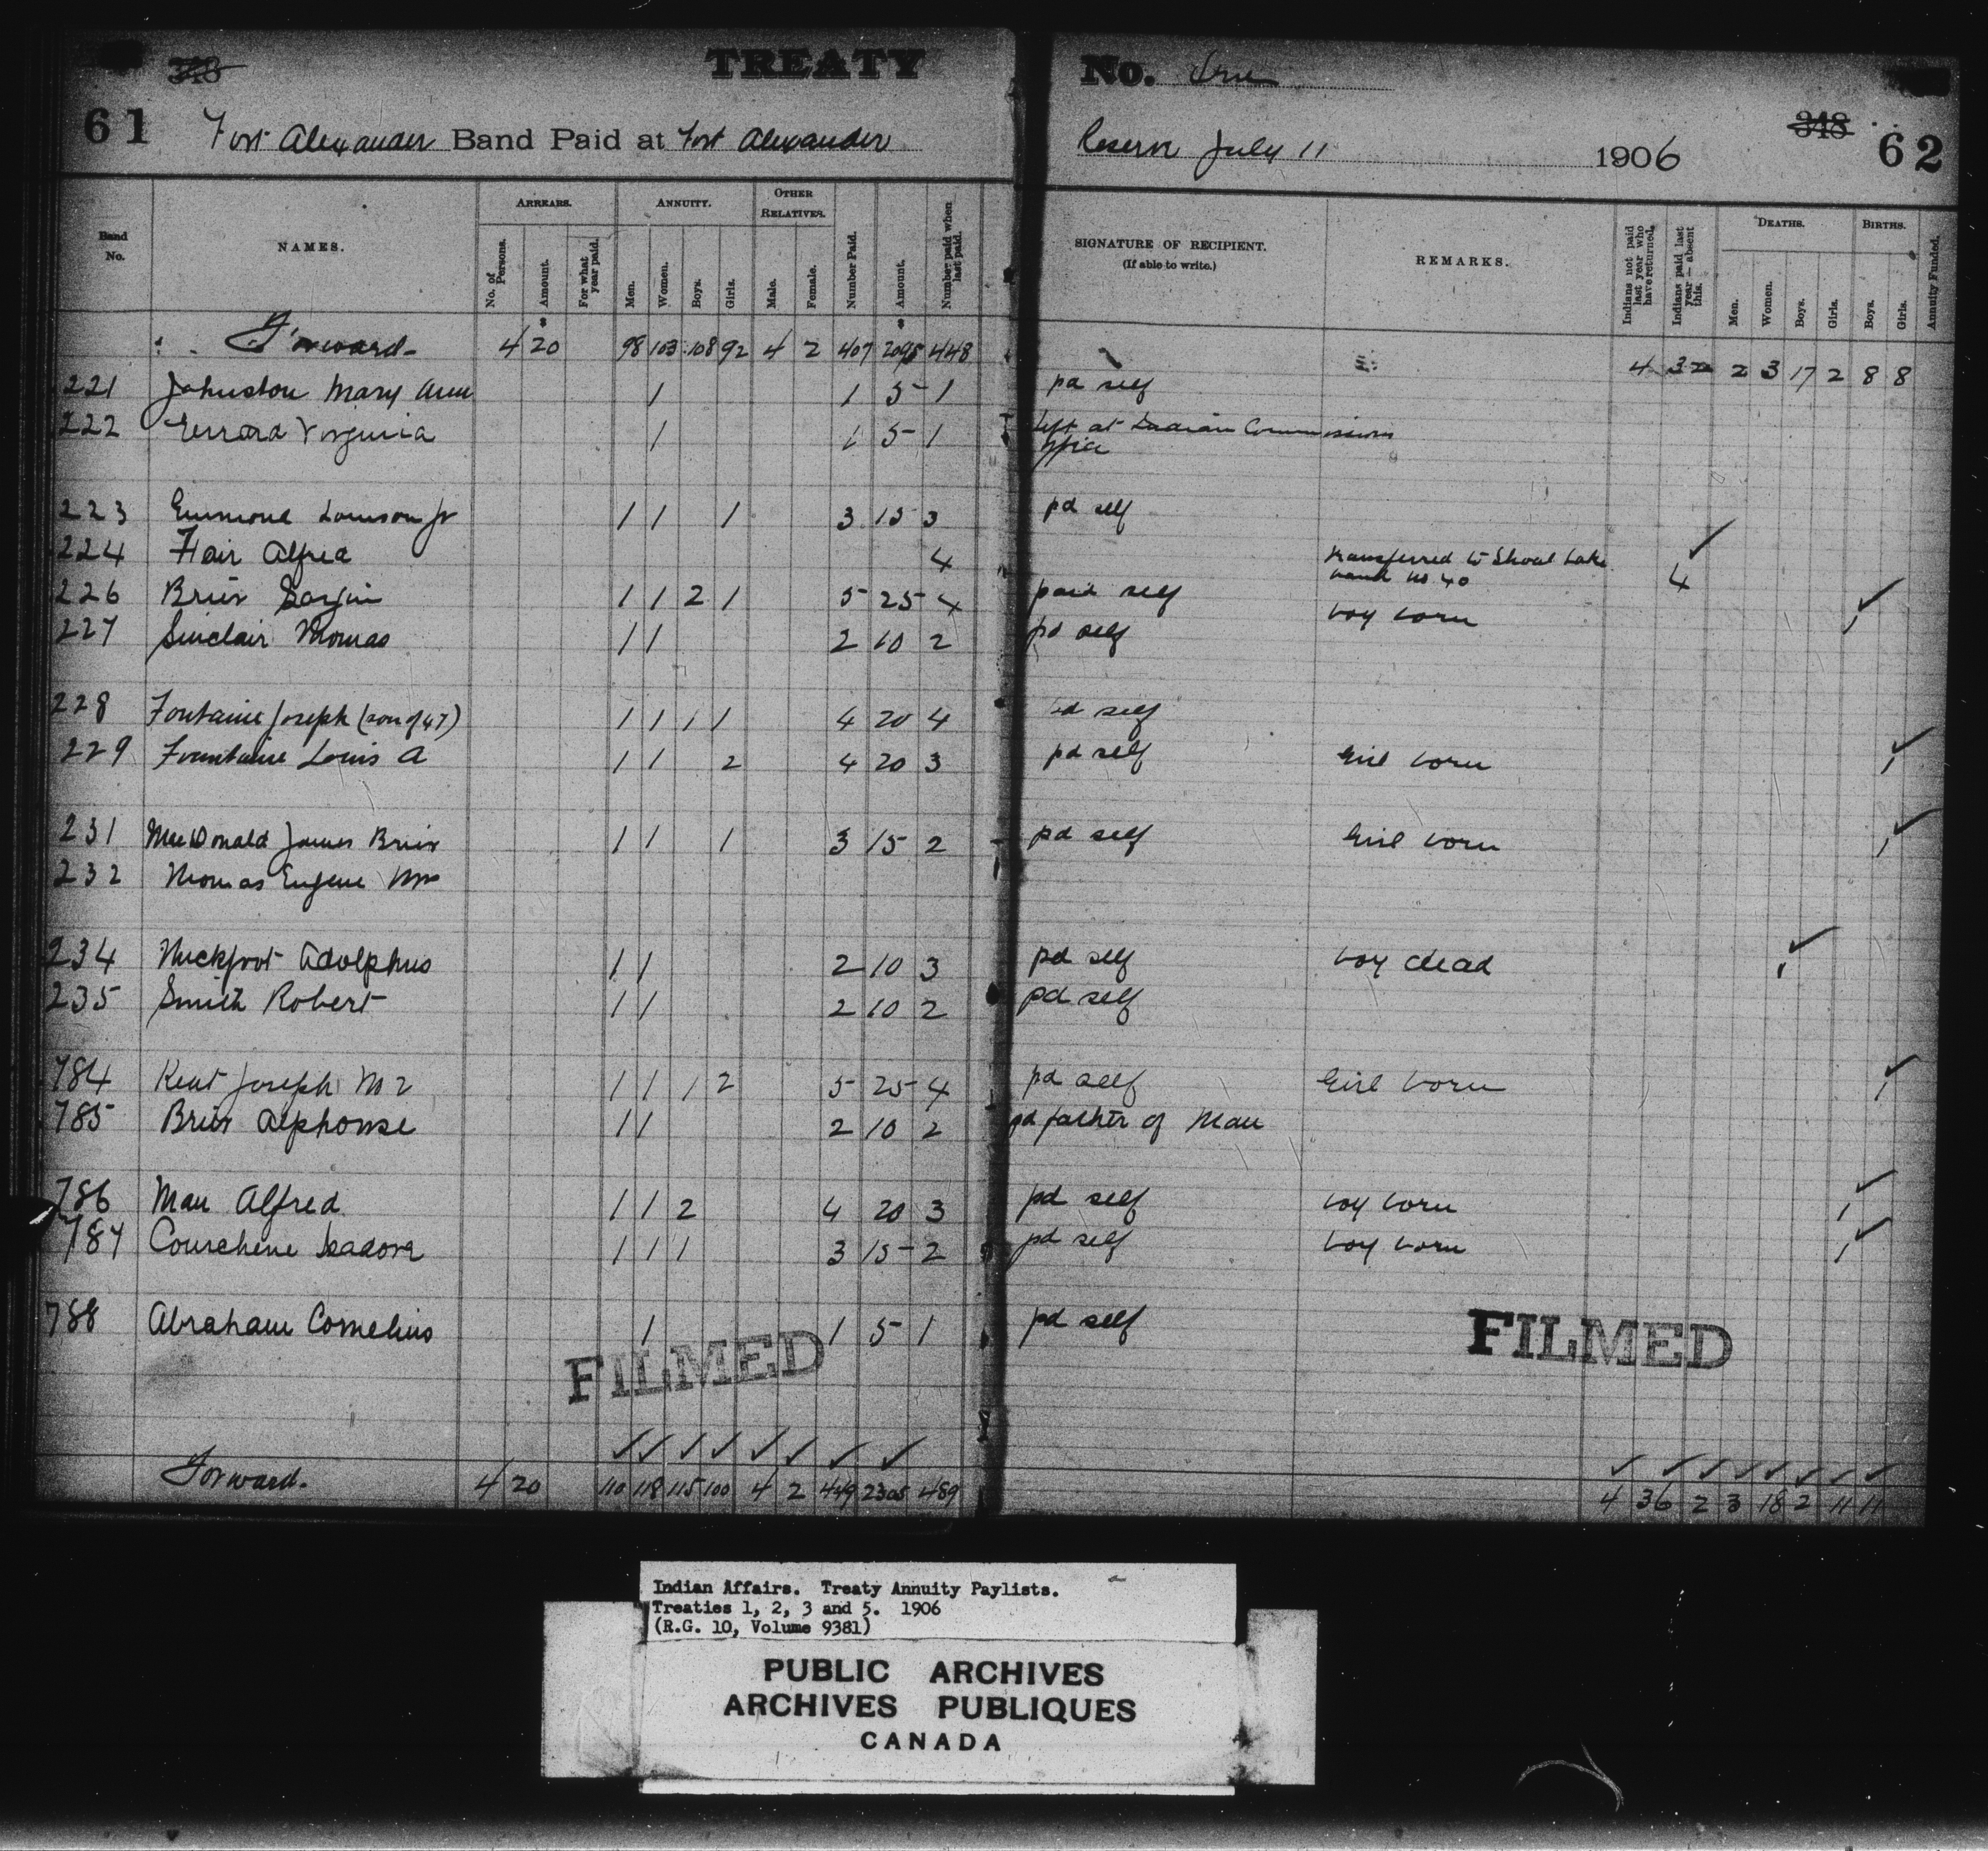 TREATY No. One
61 348
348 62
Fort Alexander Band Paid at Fort Alexander Reserve July 11 1906
Band No. NAMES. ARREARS. No. of Persons. Amount. For what year paid. ANNUITY. Men. Women. Boys. Girls. OTHER RELATIVES. Male. Female. Number Paid. Amount. Number paid when last paid. SIGNATURE OF RECIPIENT. (If able to write.) REMARKS. Indians not paid last year who have returned. Indians paid last year—absent this. DEATHS. Men. Women. Boys. Girls. BIRTHS. Boys. Girls. Annuity Funded.
Forward 4 20 98 103 108 92 4 2 407 2095 448 4 32 2 3 17 2 8 8
221 Johnston Mary Ann 1 1 5 1 pd self
222 Virginia 1 1 5 1 Left at Indian Commissioners office
223 Louison Jr 1 1 1 3 15 3 pd self
224 Flair Alfred 4 transferred to Shoal Lake band no 40 4
226 Brier 1 1 2 1 5 25 4 paid self boy born 1
227 Sinclair Thomas 1 1 2 10 2 pd self
228 Fontaine Joseph (son of 47) 1 1 1 1 4 20 4 pd self
229 Fountaine Louis A 1 1 2 4 20 3 pd self Girl born 1
231 MacDonald James Brier 1 1 1 3 15 2 pd self Girl born 1
232 Thomas Eugene
234 Adolphus 1 1 2 10 3 pd self boy dead 1
235 Smith Robert 1 1 2 10 2 pd self
784 Kent Joseph No 2 1 1 1 2 5 25 4 pd self Girl born 1
785 Brier Alphonse 1 1 2 10 2 pd father of Man
786 Man Alfred 1 1 2 4 20 3 pd self boy born 1
787 Courchene Isadore 1 1 1 3 15 2 pd self boy born 1
788 Abraham Cornelius 1 1 5 1 pd self
FILMED FILMED
Forward. 4 20 110 118 115 100 4 2 449 2305 489 4 36 2 3 18 2 11 11
Indian Affairs. Treaty Annuity Paylists.
Treaties 1, 2, 3 and 5. 1906
(R.G. 10, Volume 9381)
PUBLIC ARCHIVES
ARCHIVES PUBLIQUES
CANADA